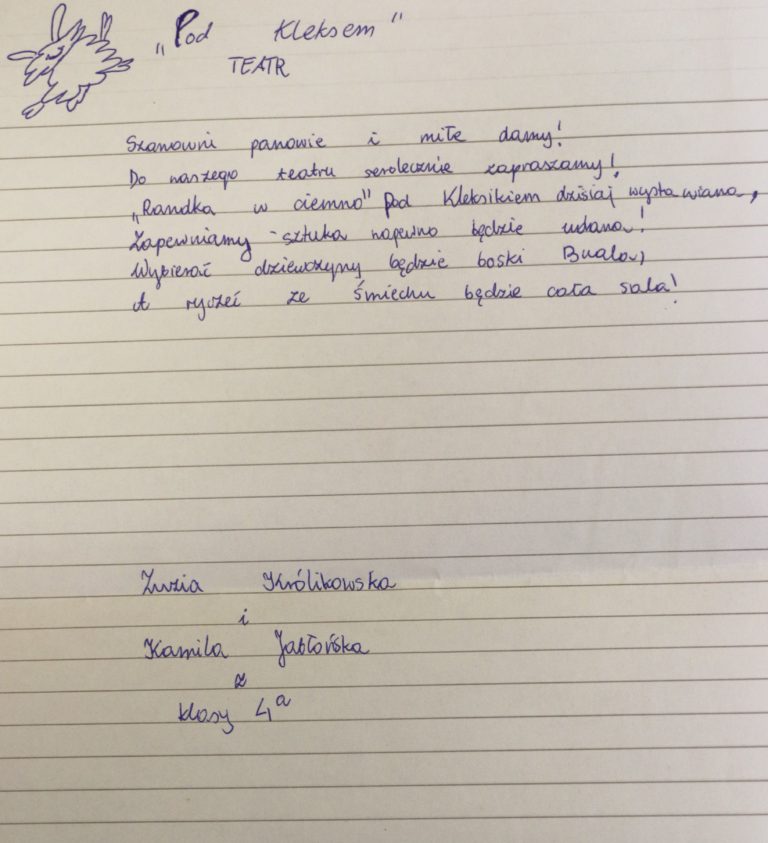 „Pod Kleksem"
TEATR
Szanowni panowie i miłe damy!
Do naszego teatru serdecznie zapraszamy!
„Randka w ciemno" pod Kleksikiem dzisiaj wystawiana,
Zapewniamy - sztuka napewno będzie udana!
Wybierać dziewczyny będzie boski Buala,
A ryczeć ze śmiechu będzie cała sala!
Zuzia Królikowska
i
Kamila Jabłońska
z
klasy 4a